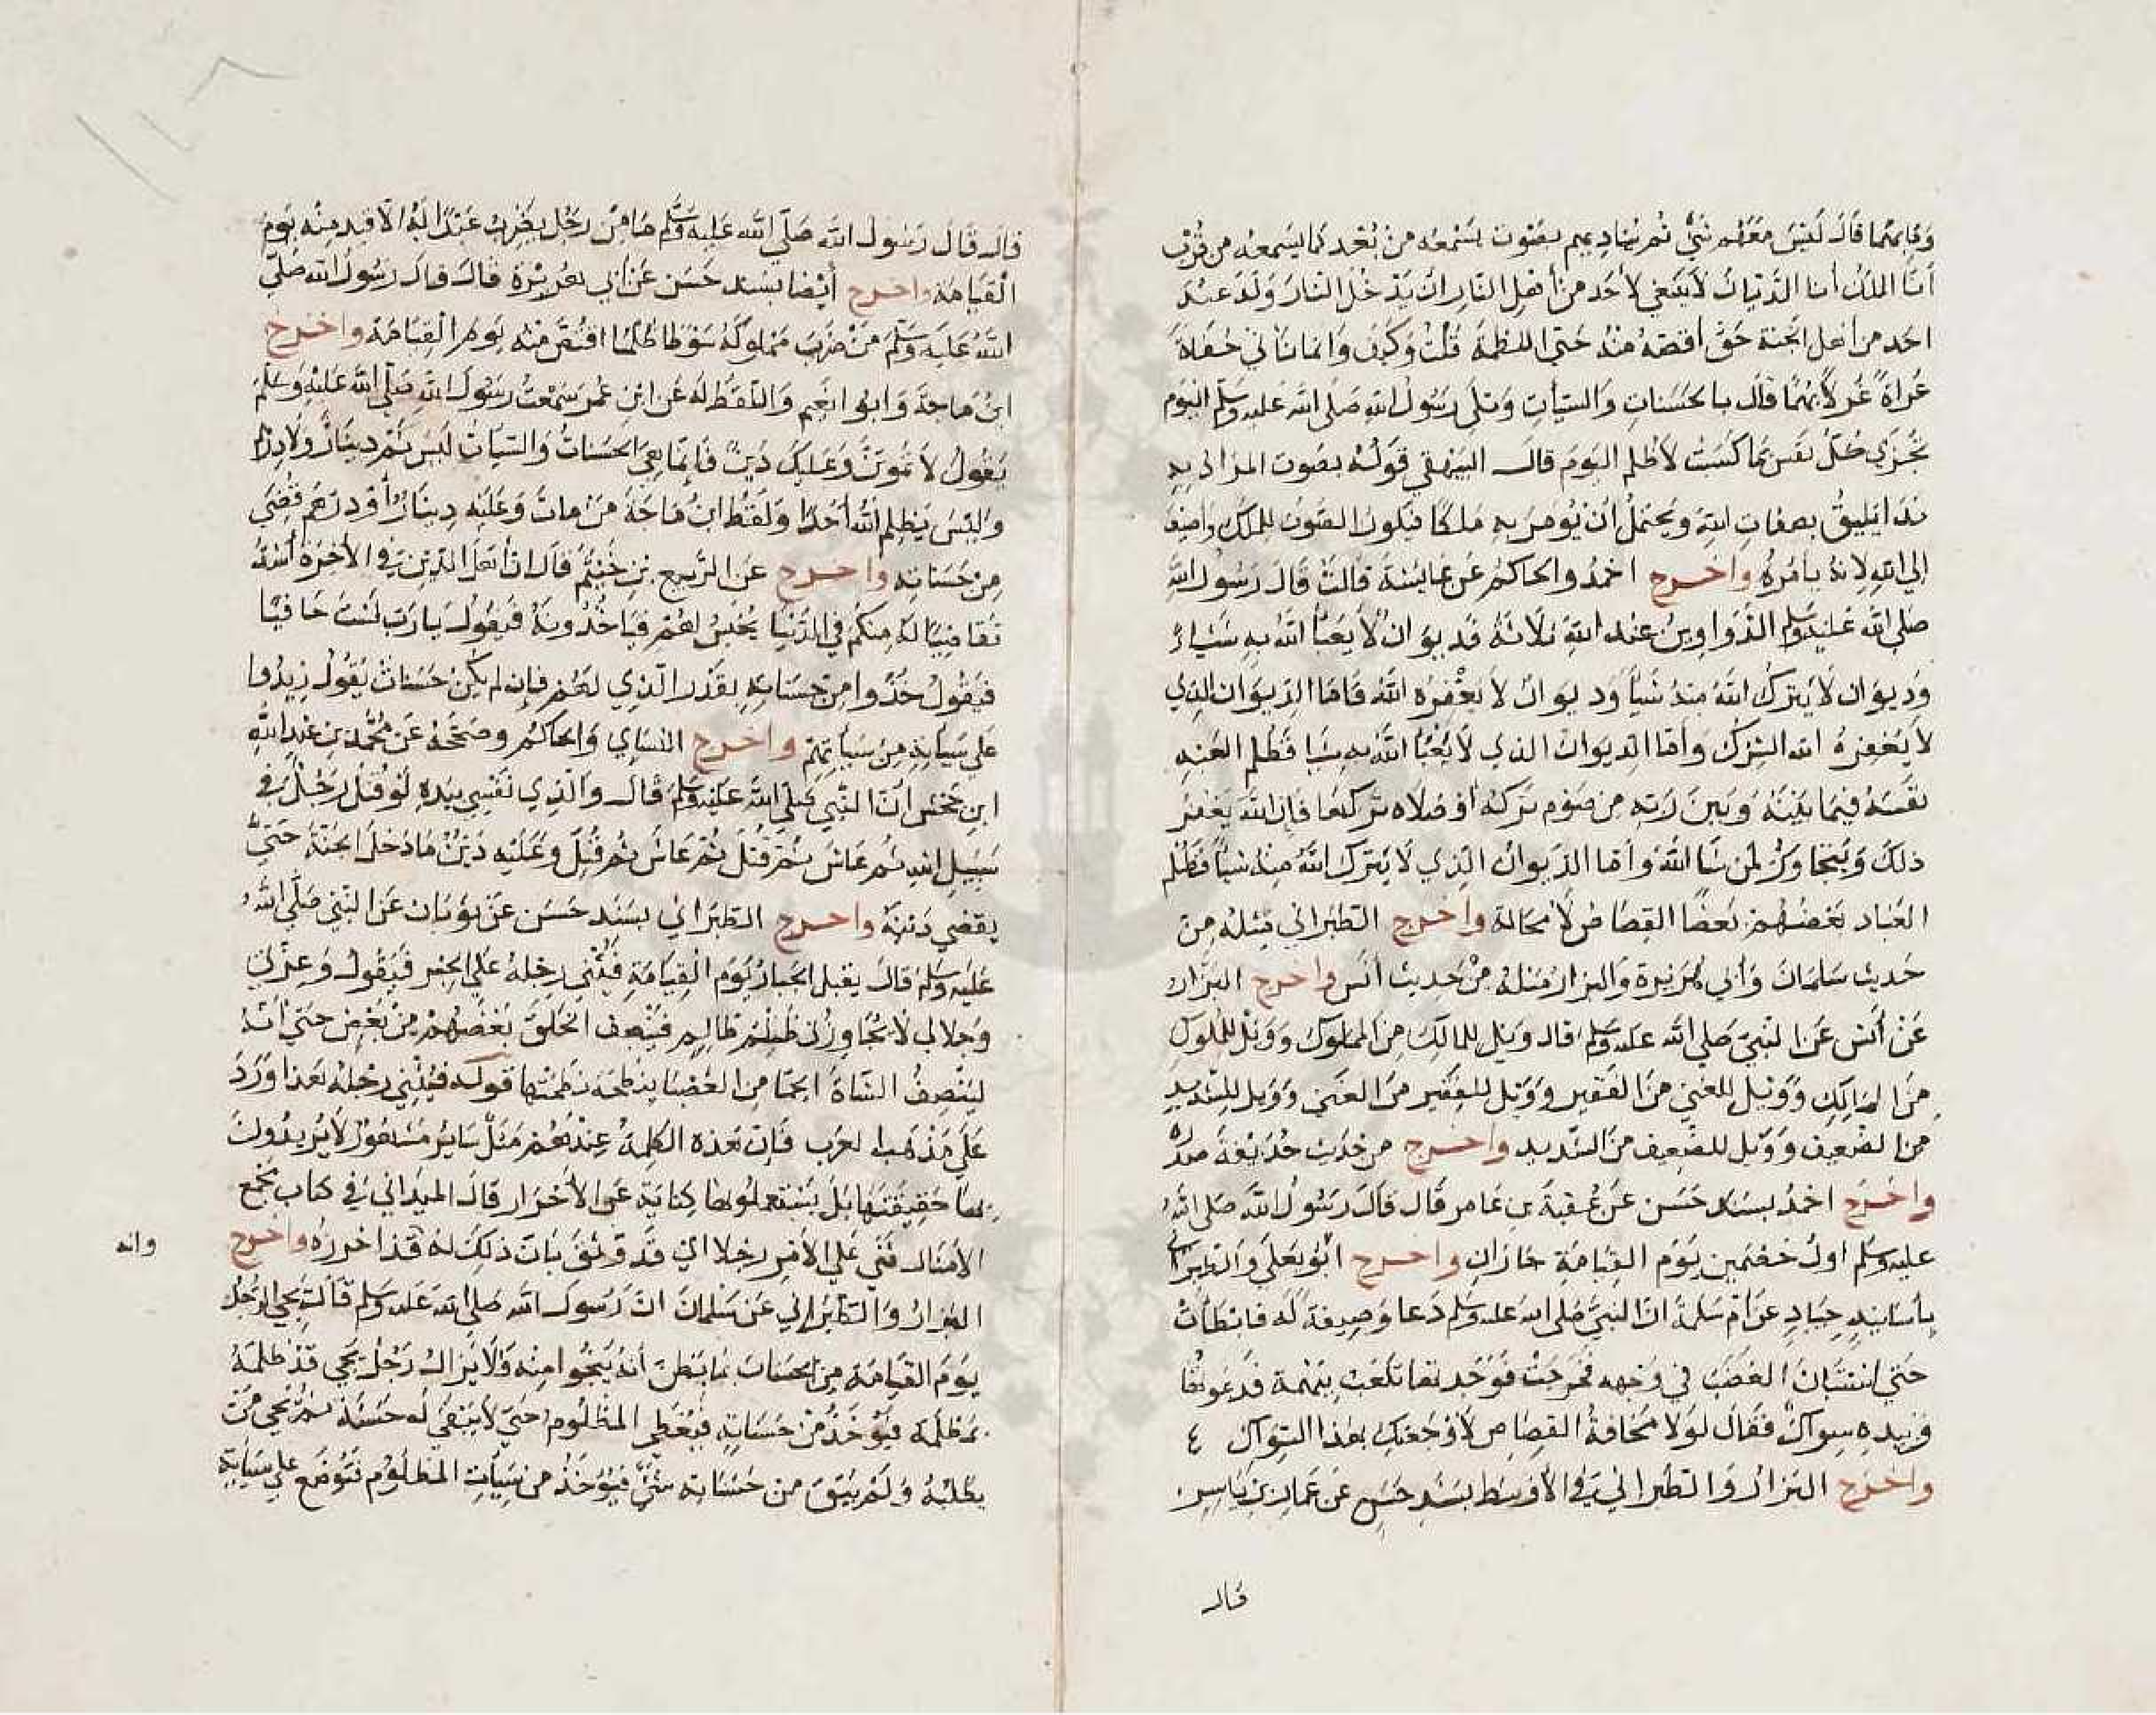 وما بهما قال ليس معهم شي ثم يناديهم بصوت يسمعه من بعد كما يسمعه من قرب
أنا الملك أنا الديان لا ينبغي لأحد من أهل النار ان يدخل النار وله عند
احد من اهل الجنة حق أقصه منه حتى اللطمة قلت وكيف وانما نأتي حفاة
عراة غرلا بهما قال بالحسنات والسيأت وتلى رسول الله صلى الله عليه وسلم اليوم
تجزي كل نفس ما كسبت لا ظلم اليوم قال البيهقي قوله بصوت المراد به
ندا يليق بصفات الله ويحتمل ان يومر به ملكا فيكون الصوت للملك واضيف
إلى الله لانه بأمره واخرج احمد والحاكم عن عايشة قالت قال رسول الله
صلى الله عليه وسلم الدواوين عند الله ثلاثة فديوان لا يعبأ الله به شياء
وديوان لا يترك الله منه شيأ وديوان لا يغفره الله فاما الديوان الذي
لا يغفره الله الشرك وأما الديوان الذي لا يعبأ الله به شيا فظلم العبد
نفسه فيما بينه وبين ربه من صوم تركه أو صلاه تركها فإن الله يغفر
ذلك ويتجاوز لمن شا الله وأما الديوان الذي لا يترك الله منه شيأ فظلم
العباد بعضهم بعضا القصاص لا محالة واخرج الطبراني مثله من
حديث سلمان وأبي هريرة والبزار مثله من حديث أنس واخرج البزار
عن أنس عن النبي صلى الله عليه وسلم قال ويل للمالك من المملوك وويل للملوك
من المالك وويل للغني من الفقير وويل للفقير من الغني وويل للشديد
من الضعيف وويل للضعيف من الشديد واخرج من حديث حذيفة مثله
واخرج احمد بسند حسن عن عقبة بن عامر قال قال رسول الله صلى الله
عليه وسلم اول خصمين يوم القيامة جاران واخرج ابو يعلى والطبراني
بأسانيد جياد عن ام سلمة ان النبي صلى الله عليه وسلم دعا وصيفة له فابطأت
حتى استبان الغضب في وجهه فخرجت فوجدتها تلعب ببهمة فدعوتها
وبيده سواك فقال لولا مخافة القصاص لأوجعتك بهذا السواك ٤
واخرج البزار والطبراني في الأوسط بسند حسن عن عمار بن ياسر
قال
قال قال رسول الله صلى الله عليه وسلم ما من رجل يضرب عبدا له الا قيد منه يوم
القيامة واخرج أيضا بسند حسن عن أبي هريرة قال قال رسول الله صلى
الله عليه وسلم من ضرب مملوكه سوطا ظلما اقتص منه يوم القيامة واخرج
ابن ماجة وابو انعيم واللفظ له عن ابن عمر سمعت رسول الله صلى الله عليه وسلم
يقول لا تموتن وعليك دين فإنما هي الحسنات والسيات ليس ثم دينار ولا درهم
وليس يظلم الله أحدا ولفظ ابن ماجة من مات وعليه دينار أو درهم قضي
من حسناته واخرج عن الربيع بن خيثم قال ان أهل الدين في الآخرة أشد
تقاضيا له منكم في الدنيا يحبس لهم فياخذونه فيقول يا رب لست حافيا
فيقول خذوا من حسناته بقدر الذي لهم فإن لم يكن حسنات يقول زيدوا
على سياته من سياتهم واخرج النساي والحاكم وصححه عن محمد بن عبد الله
ابن جحش ان النبي صلى الله عليه وسلم قال والذي نفسي بيده لو قتل رجل في
سبيل الله ثم عاش ثم قتل ثم عاش ثم قتل وعليه دين ما دخل الجنة حتى
يقضي دينه واخرج الطبراني بسند حسن عن ثوبان عن النبي صلى الله
عليه وسلم قال يقبل الجبار يوم القيامة فيثني رجله على الجسر فيقول وعزتي
وجلالي لا يجاوزني ظلم ظالم فينصف الخلق بعضهم من بعض حتى أنه
لينصف الشاة الجما من العضبا بنطحة نطحتها قوله فيثني رجله هذا ورد
على مذهب العرب فإن هذه الكلمة عندهم مثل ساير مشهور لا يريدون
بها حقيقتها بل يستعملونها كناية عن الأحرار قال الميداني في كتاب مجمع
الأمثال ثني على الأمر رجلا اي قد وثق بان ذلك له قد احرزه واخرج
وانه
البزار والطبراني عن سلمان ان رسول الله صلى الله عليه وسلم قال يجي الرجل
يوم القيامة من الحسنات بما يظن أنه ينجوا منه ولا يزال رجل يجي قد ظلمه
بمظلمة فيؤخذ من حسناته فيعطى المظلوم حتى لا يبقى له حسنة ثم يجي من
يطلبه ولم يبق من حسناته شي فيؤخذ من سيأت المظلوم فتوضع على سيأته